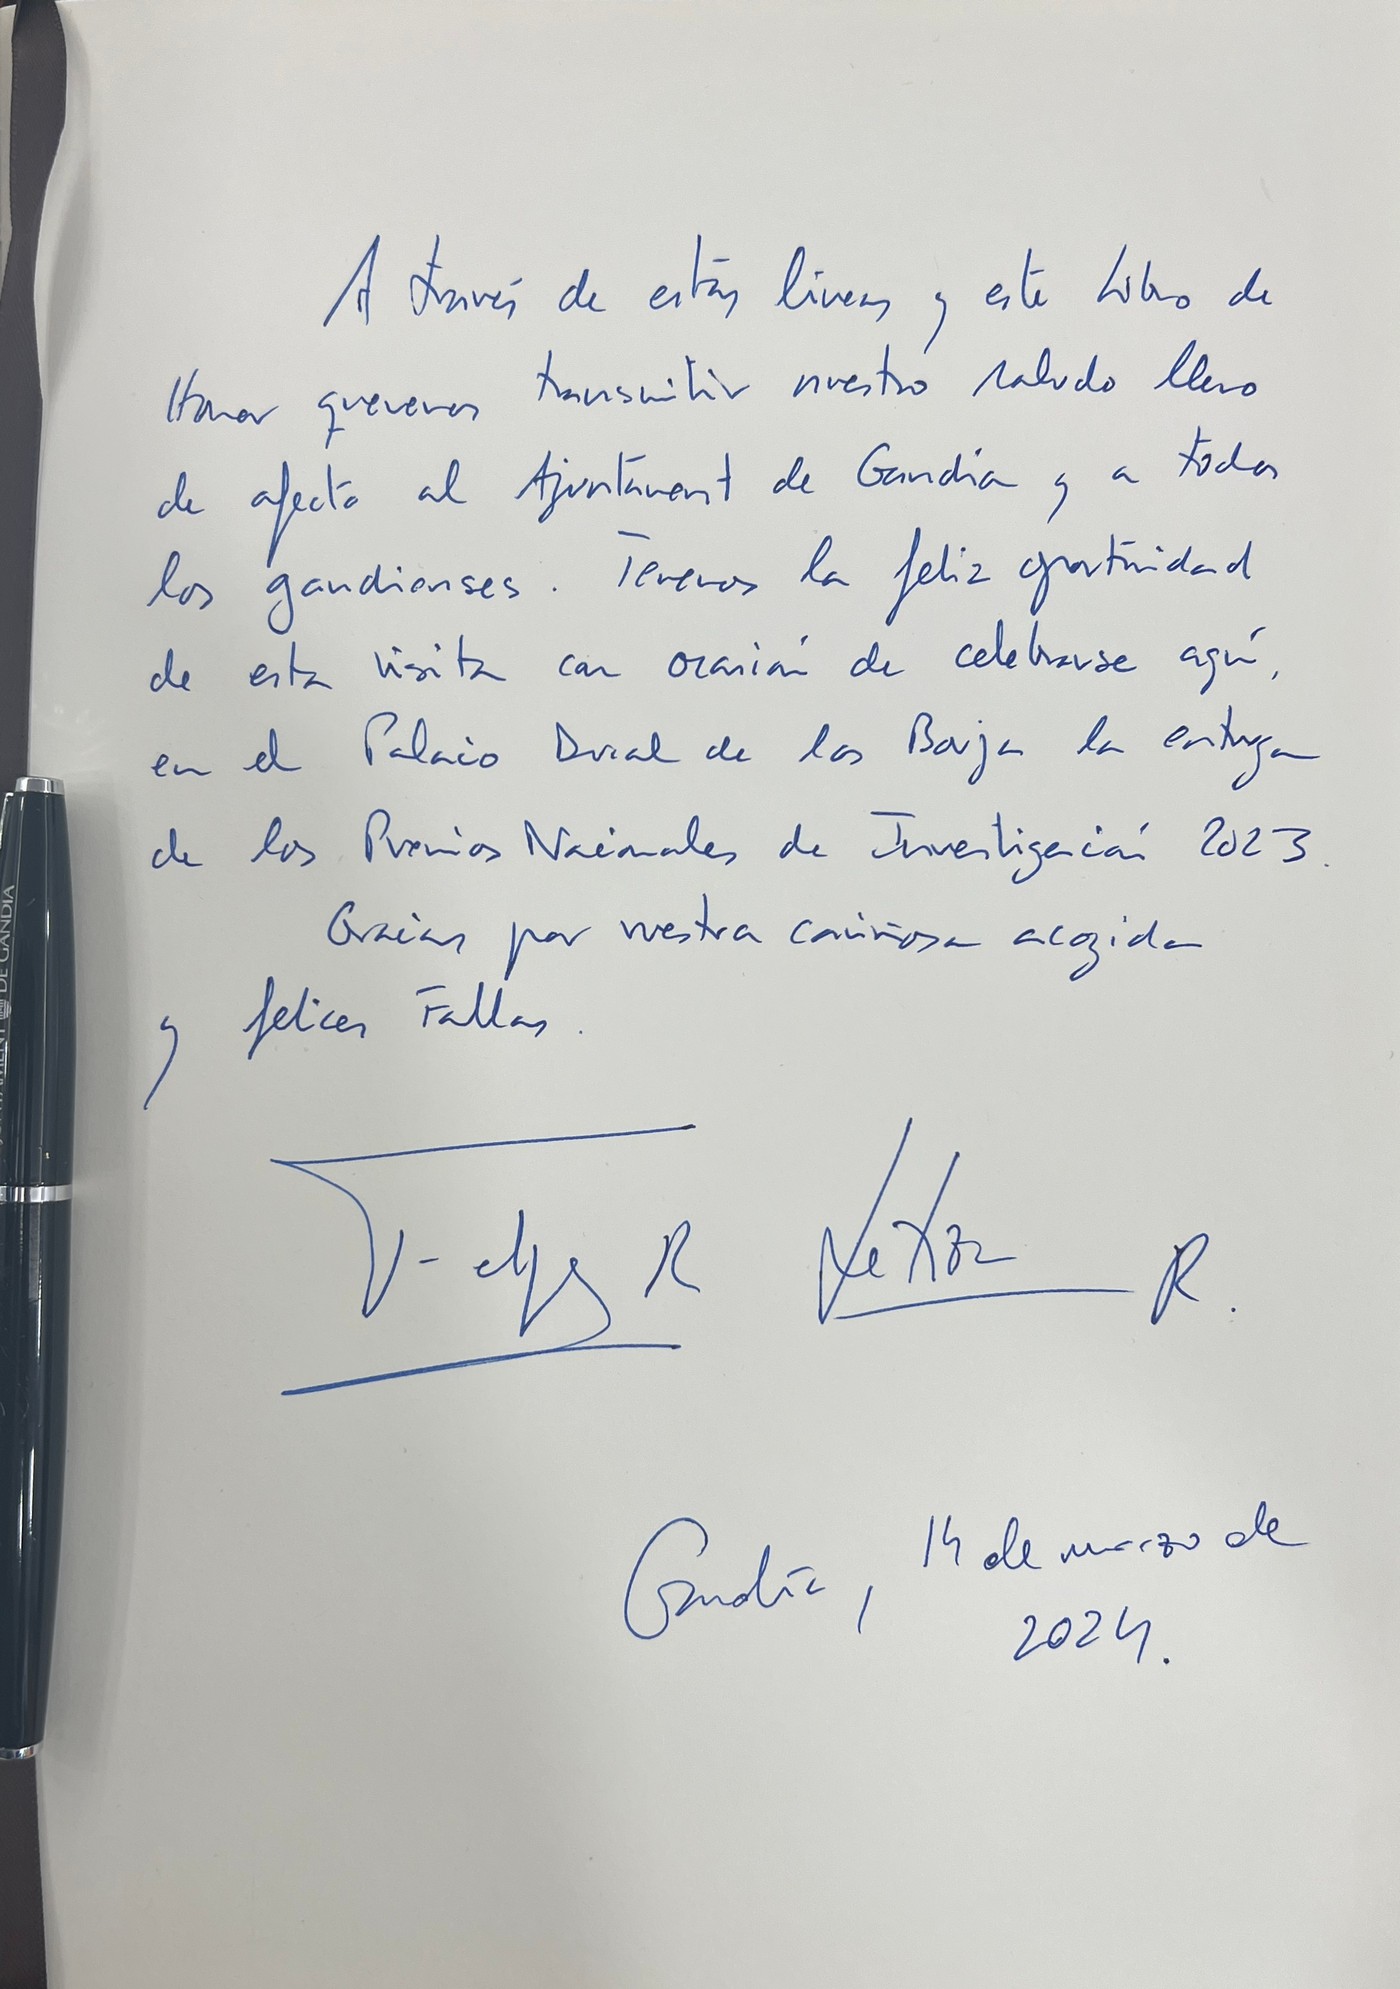 A través de estas líneas y este Libro de
Honor queremos transmitir nuestro saludo lleno
de afecto al Ajuntament de Gandía y a todos
los gandienses. Tenemos la feliz oportunidad
de esta visita con ocasión de celebrarse aquí,
en el Palacio Ducal de los Borja la entrega
de los Premios Nacionales de Investigación 2023.
Gracias por vuestra cariñosa acogida
y felices Fallas.
Felipe R Letizia R.
Gandía, 14 de marzo de
2024.
AJUNTAMENT DE GANDIA